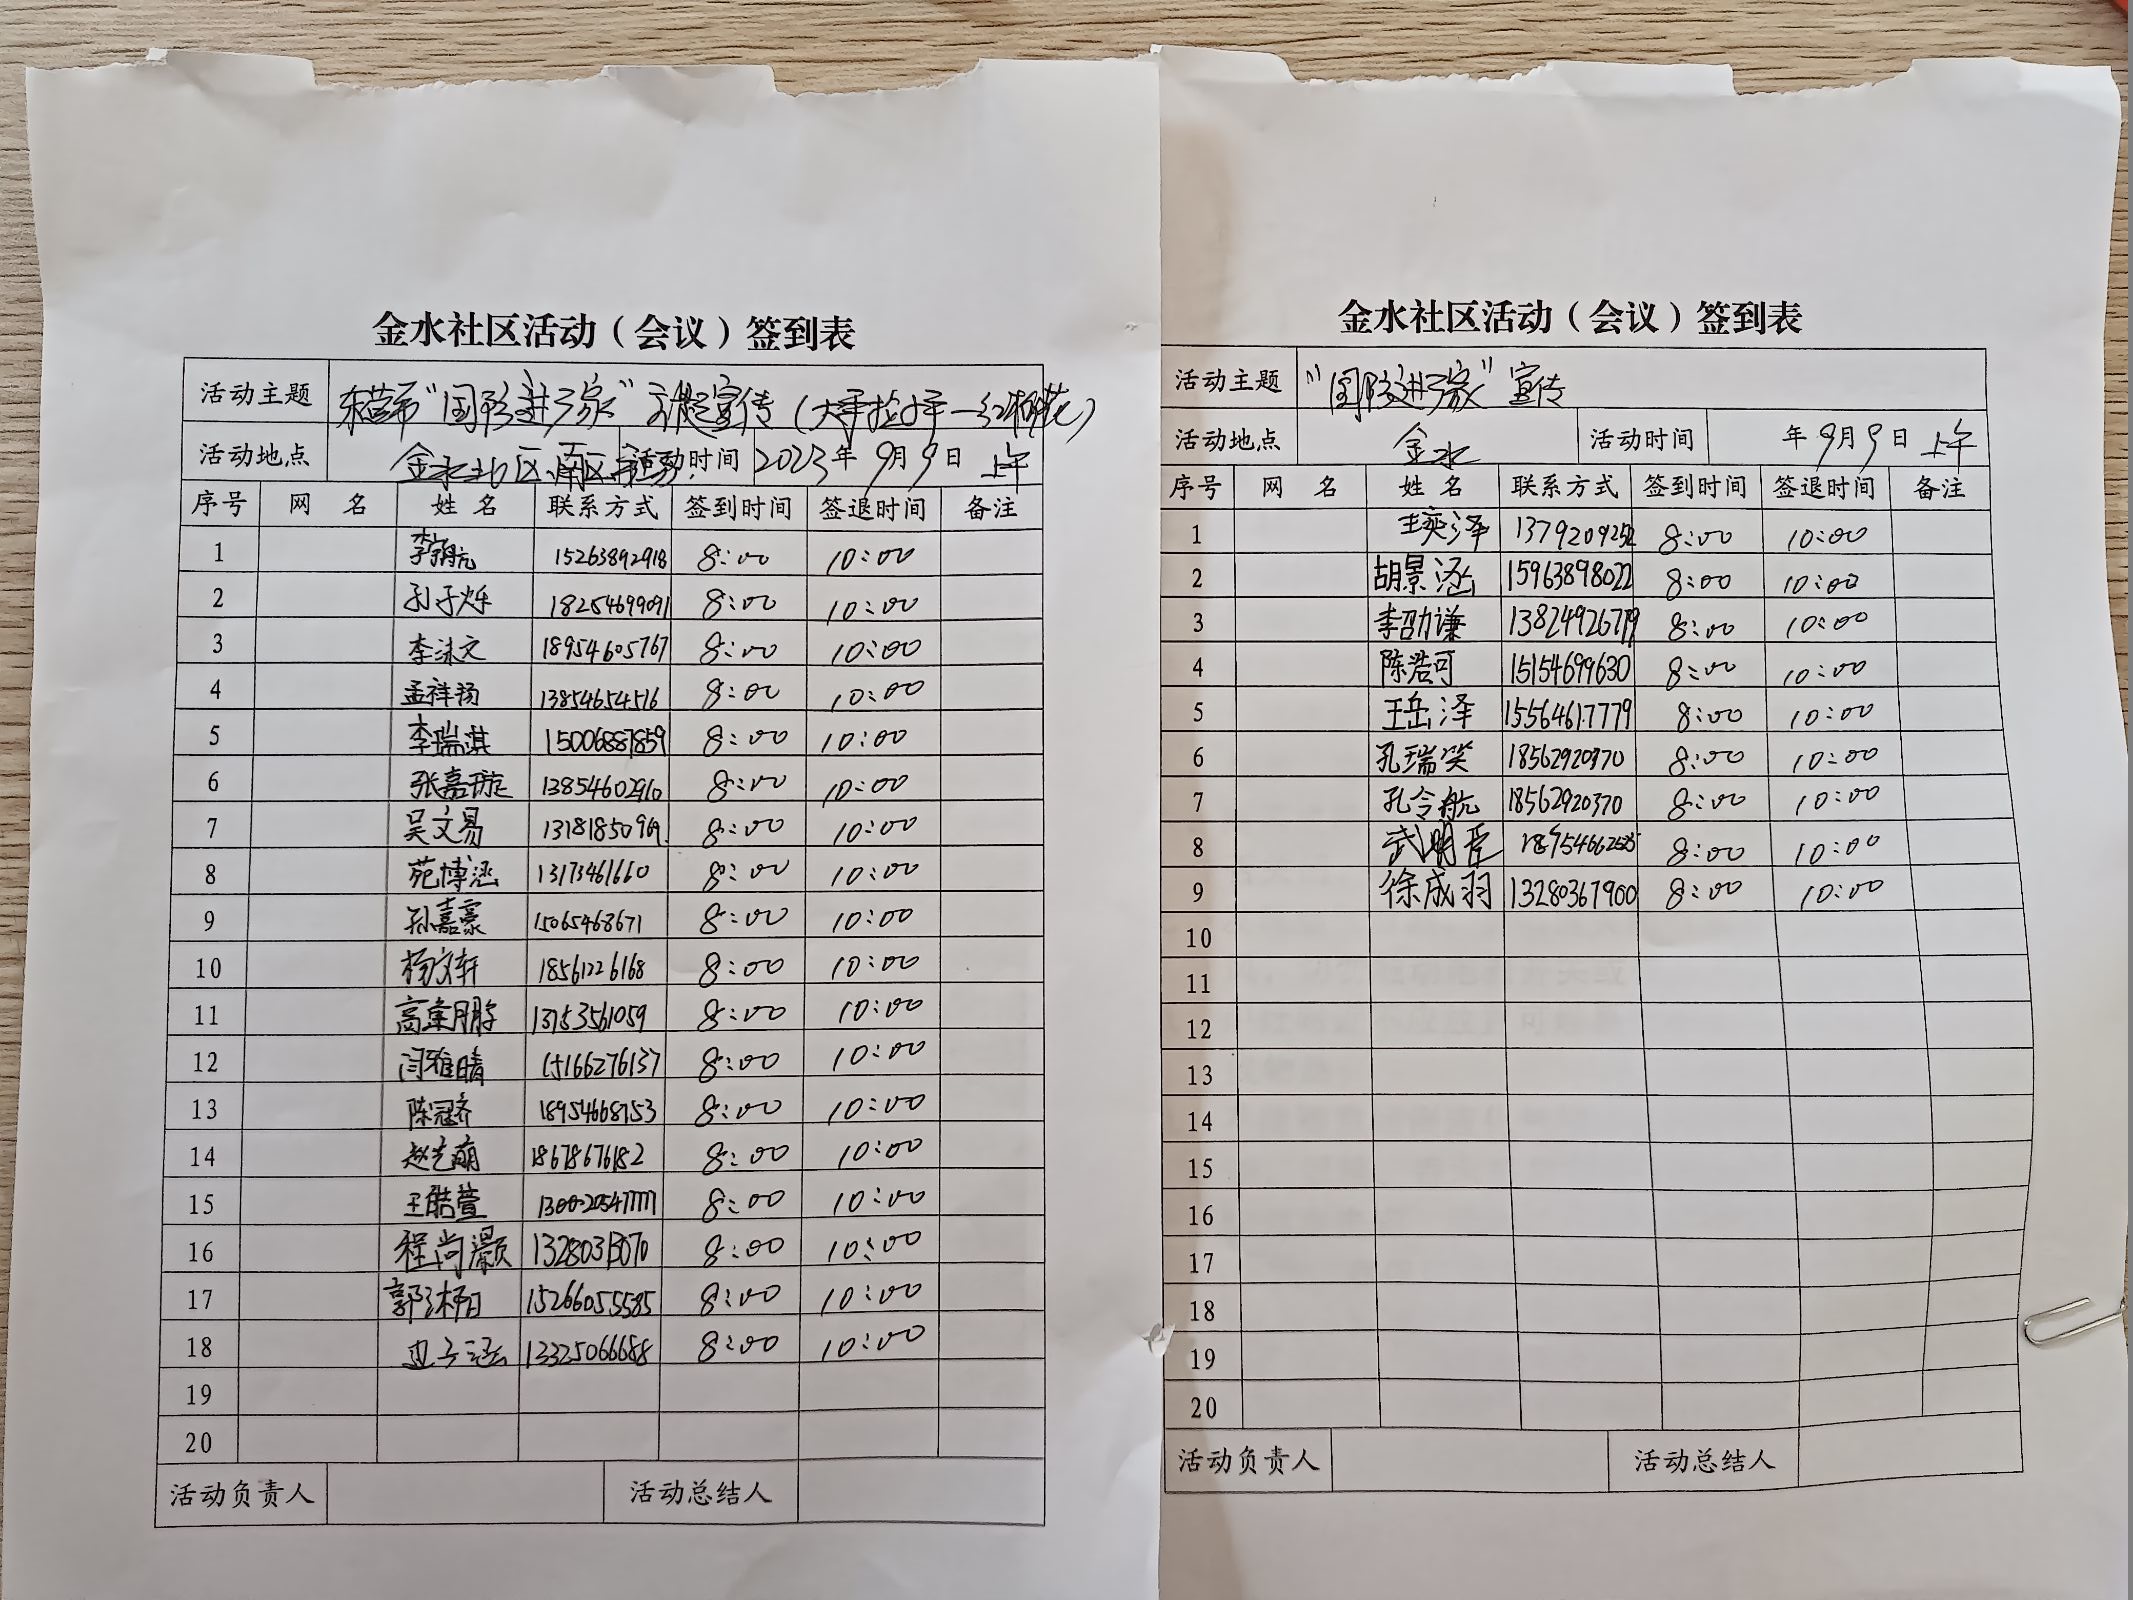 金水社区活动（会议）签到表
活动主题 东营市“国形进万家”主题宣传（大手拉小手—红柳花）
活动地点 金水北区、南区 活动时间 2023年9月9日 上午
序号 网 名 姓 名 联系方式 签到时间 签退时间 备注
1 李翰航 15263892918 8:00 10:00
2 孙子烁 18254699091 8:00 10:00
3 李沐文 18954605767 8:00 10:00
4 孟祥扬 13854654516 8:00 10:00
5 李瑞淇 15006887859 8:00 10:00
6 张嘉璇 13854602910 8:00 10:00
7 吴文易 13181850969 8:00 10:00
8 苑博涵 13173461660 8:00 10:00
9 孙嘉豪 15065468671 8:00 10:00
10 杨文轩 18561226168 8:00 10:00
11 8:00 10:00
12 闫雅晴 15166276137 8:00 10:00
13 陈冠齐 18954668753 8:00 10:00
14 赵艺萌 18678676182 8:00 10:00
15 王皓萱 8:00 10:00
16 程尚灏 13280313070 8:00 10:00
17 15266055585 8:00 10:00
18 13325066688 8:00 10:00
19
20
活动负责人 活动总结人
金水社区活动（会议）签到表
活动主题 “国形进万家”宣传
活动地点 金水 活动时间 年9月9日 上午
序号 网 名 姓 名 联系方式 签到时间 签退时间 备注
1 王奕泽 1379209252 8:00 10:00
2 胡景涵 15963898022 8:00 10:00
3 李劭谦 13824926779 8:00 10:00
4 陈浩可 15154699630 8:00 10:00
5 王岳泽 15564617779 8:00 10:00
6 孔瑞笑 18562920370 8:00 10:00
7 孔令航 18562920370 8:00 10:00
8 武明臣 8:00 10:00
9 徐成羽 13280367900 8:00 10:00
10
11
12
13
14
15
16
17
18
19
20
活动负责人 活动总结人